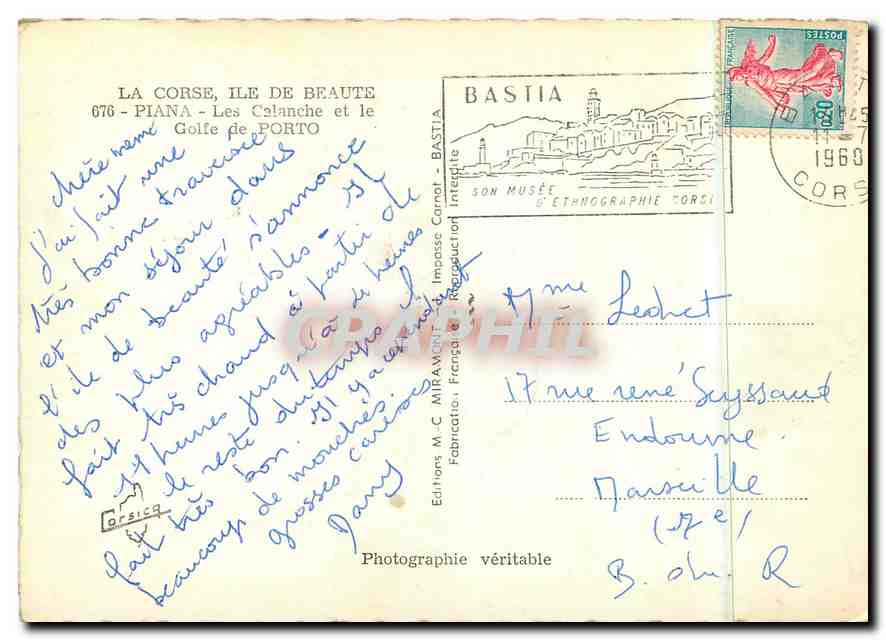 LA CORSE, ILE DE BEAUTE
676 - PIANA - Les Calanche et le
Golfe de PORTO
chère mémé
J'ai fait une
très bonne traversée
et mon séjour dans
l'île de beauté s'annonce
des plus agréables - Il
fait très chaud à partir de
11 heures jusqu'à heures
le reste du temps il
fait très bon. Il y a cependant
beaucoup de mouches.
grosses caresses
Dany
Corsica
Photographie véritable
Editions M.-C. MIRAMONT - Impasse Carnot - BASTIA
Fabrication Française - Reproduction Interdite
BASTIA
SON MUSÉE
D'ETHNOGRAPHIE CORSE
REPUBLIQUE FRANÇAISE
POSTES
0,20
1960
CORSE
Mme
17 rue rené
Endoume
Marseille
(7e)
B. du R
CPAPHIL